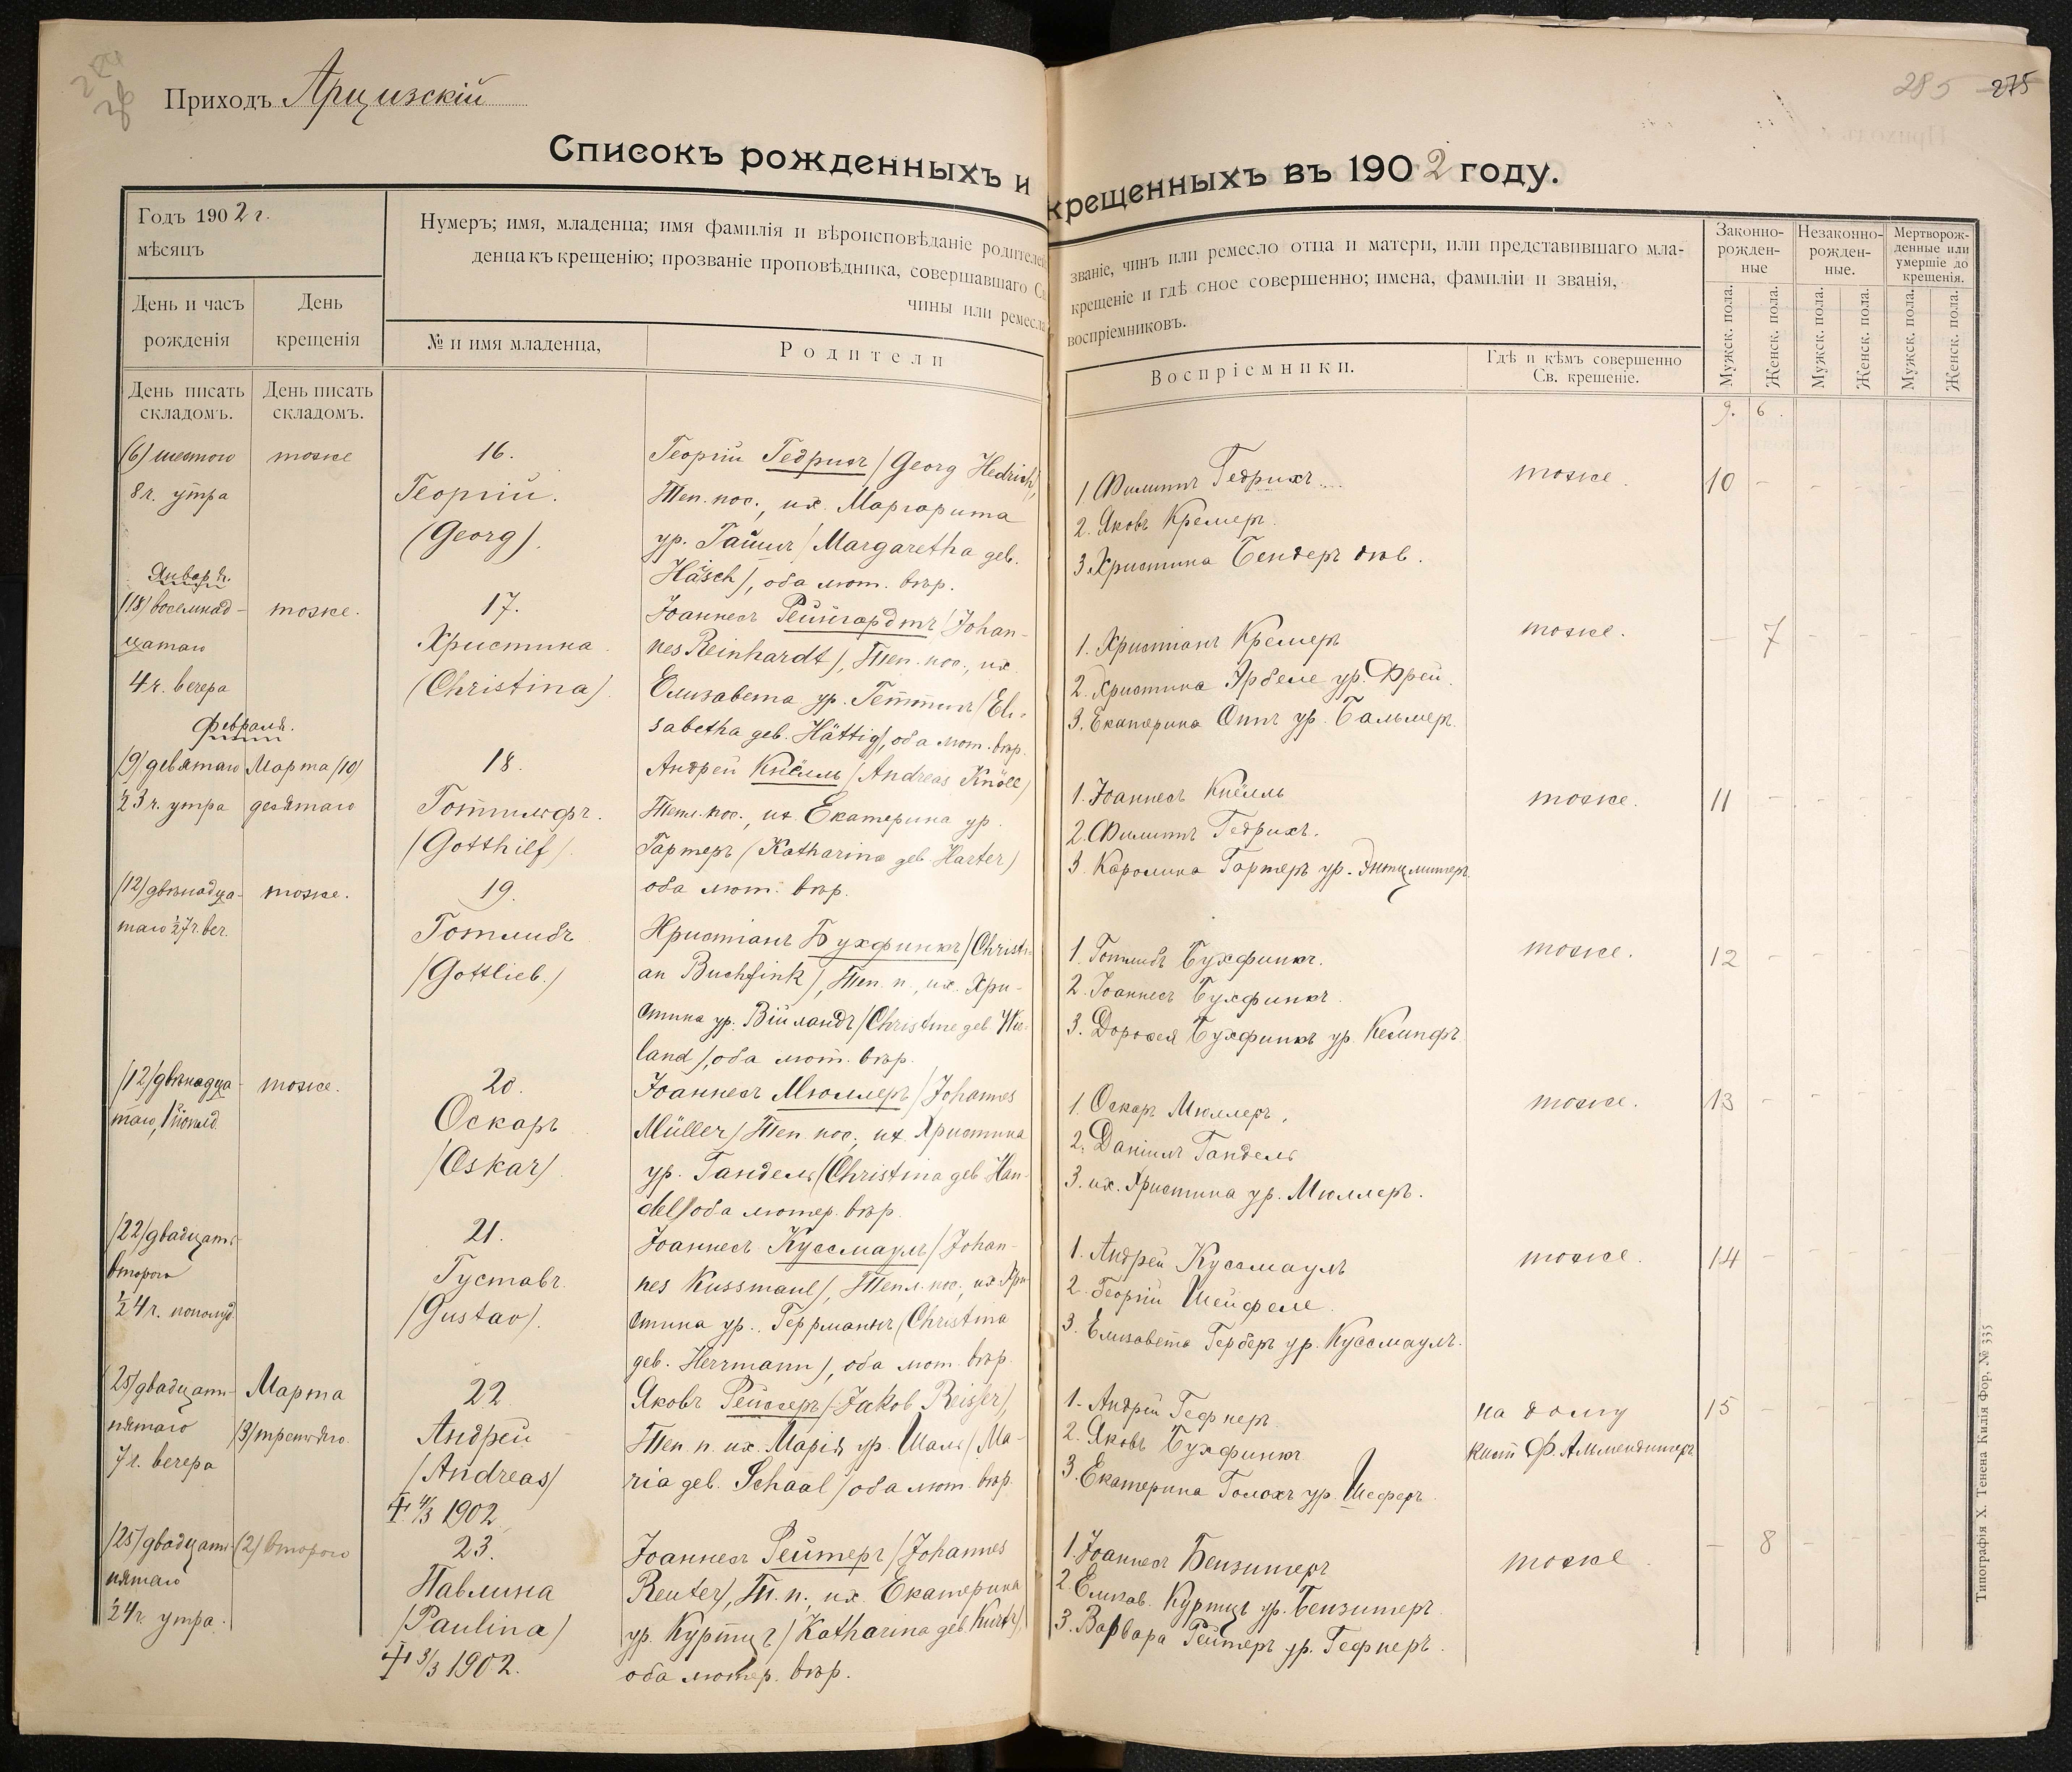 Приходъ Арцизскій
285 275
Списокъ рожденныхъ и крещенныхъ въ 1902 году.
Годъ 1902 г.
мѣсяцъ
День и часъ рожденія
День крещенія
День писать складомъ.
День писать складомъ.
Нумеръ; имя, младенца; имя фамилія и вѣроисповѣданіе родителей
званіе, чинъ или ремесло отца и матери, или представившаго мла-
денца къ крещенію; прозваніе проповѣдника, совершавшаго Св.
крещеніе и гдѣ оное совершенно; имена, фамиліи и званія,
чины или ремесла
воспріемниковъ.
№ и имя младенца,
Родители
Воспріемники.
Гдѣ и кѣмъ совершенно
Св. крещеніе.
Законно-
рожден-
ные
Незаконно-
рожден-
ные.
Мертворож-
денные или
умершіе до
крещенія.
Мужск. пола.
Женск. пола.
Мужск. пола.
Женск. пола.
Мужск. пола.
Женск. пола.
9. 6.
(6) шестого
8 ч. утра
тоже
16.
Георгій.
(Georg).
Георгій Гедрихъ (Georg Hedrich),
Теп. пос., их. Маргарита
ур. Гайшъ (Margaretha geb.
Häsch), оба лют. вѣр.
1. Филиппъ Гедрихъ.
2. Яковъ Кремеръ.
3. Христина Бендеръ дѣв.
тоже.
10
Января.
(18) восемнад-
цатаго
4 ч. вечера
тоже.
17.
Христина.
(Christina).
Іоаннесъ Рейнгардтъ (Johan-
nes Reinhardt), Теп. пос., их.
Елизавета ур. Геттигъ (Eli-
sabetha geb. Hättig), оба лют. вѣр.
1. Христіанъ Кремеръ
2. Христина Эрбеле ур. Фрей.
3. Екатерина Оттъ ур. Бальмеръ.
тоже.
7
Февраля.
(9) девятаго
½3 ч. утра
Марта (10)
десятаго
18.
Готтильфъ.
(Gotthilf).
Андрей Кнёлль (Andreas Knöll)
Тепл. пос., их. Екатерина ур.
Гартеръ (Katharina geb. Harter)
оба лют. вѣр.
1. Іоаннесъ Кнёлль
2. Филиппъ Гедрихъ.
3. Каролина Гартеръ ур. Энтцмингеръ.
тоже.
11
(12) двѣнадца-
таго ½7 ч. веч.
тоже.
19.
Готлибъ
(Gottlieb.)
Христіанъ Бухфинкъ (Christi-
an Buchfink), Теп. п., их. Хри-
стина ур. Виландъ (Christine geb. Wie-
land), оба лют. вѣр.
1. Готлибъ Бухфинкъ.
2. Іоаннесъ Бухфинкъ.
3. Доротея Бухфинкъ ур. Кемпфъ.
тоже.
12
(12) двѣнадца-
таго,
тоже.
20.
Оскаръ
(Oskar).
Іоаннесъ Мюллеръ (Johannes
Müller) Теп. пос., их. Христина
ур. Гандель (Christina geb. Han-
del) оба лютер. вѣр.
1. Оскаръ Мюллеръ,
2. Даніилъ Гандель
3. их. Христина ур. Мюллеръ.
тоже.
13
(22) двадцать
второго
½4 ч. пополуд.
21.
Густавъ
(Gustav).
Іоаннесъ Куссмауль (Johan-
nes Kussmaul), Тепл. пос., их. Хри-
стина ур. Геррманнъ (Christina
geb. Herrmann), оба лют. вѣр.
1. Андрей Куссмауль
2. Георгій Шейфеле.
3. Елизавета Герберъ ур. Куссмауль.
тоже.
14
(25) двадцать
пятаго
7 ч. вечера
Марта
(3) третьяго.
22
Андрей
(Andreas)
† 4/3 1902
Яковъ Рейссеръ (Jakob Reisser),
Теп. п. их. Марія ур. Шаль (Ma-
ria geb. Schaal) оба лют. вѣр.
1. Андрей Гефнеръ.
2. Яковъ Бухфинкъ
3. Екатерина Голохъ ур. Шеферъ.
на дому
15
(25) двадцать
пятаго
½4 ч. утра.
(2) второго
23.
Павлина
(Paulina)
† 3/3 1902.
Іоаннесъ Рейтеръ (Johannes
Reuter), Т. п., их. Екатерина
ур. Куртцъ (Katharina geb. Kurtz),
оба лютер. вѣр.
1. Іоаннесъ Бензингеръ
2. Елизав. Куртцъ ур. Бензингеръ
3. Варвара Рейтеръ ур. Гефнеръ.
тоже.
8
Типографія Х. Тенена Килія Фор, № 335